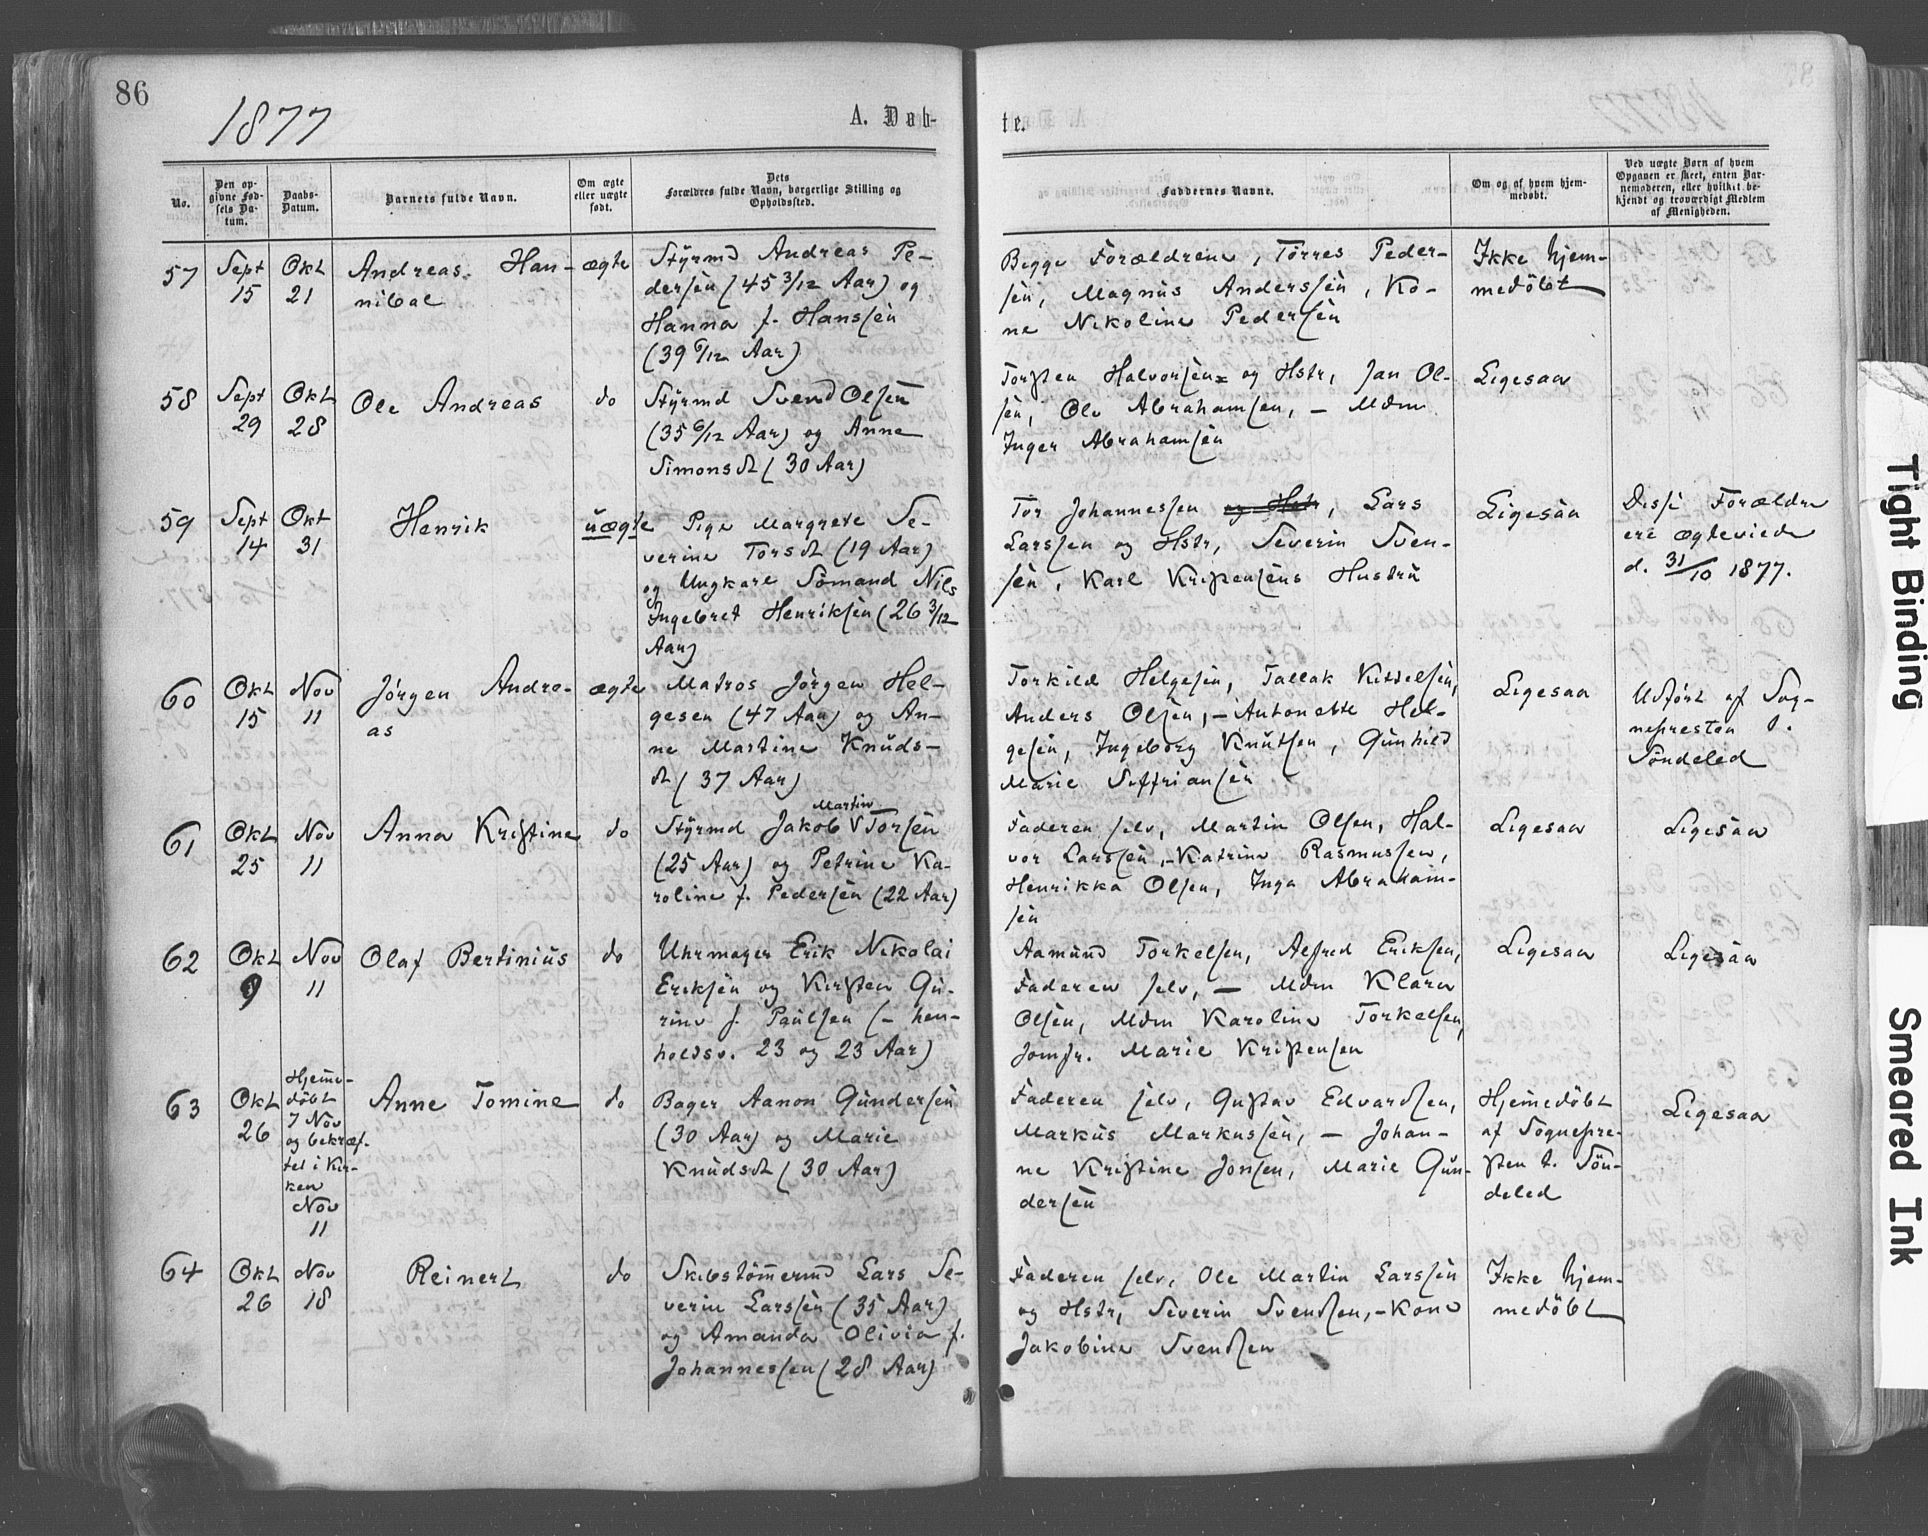 86
1877
A. Døb-
te.
No.
Den op-
givne Fød-
sels Da-
tum.
Daabs-
Datum.
Barnets fulde Navn.
Om ægte
eller uægte
født.
Dets
Forældres fulde Navn, borgerlige Stilling og
Opholdssted.
Faddernes Navne.
Om og af hvem hjem-
medøbt.
Ved uægte Børn af hvem
Opgaven er skeet, enten Bar-
nemoderen, eller hvilket be-
kjendt og troværdigt Medlem
af Menigheden.
57
Sept
15
Okt
21
Andreas Han-
nibal
ægte
Styrmd Andreas Pe-
dersen (45 3/12 Aar) og
Hanna f. Hanssen
(39 6/12 Aar)
Begge Forældrene, Tørres Peder-
sen, Magnus Anderssen, Ko-
ne Nikoline Pedersen
Ikke hjem-
medöbt
58
Sept
29
Okt
28
Ole Andreas
do
Styrmd Svend Olsen
(35 6/12 Aar) og Anne
Simonsdt (30 Aar)
Torsten Halvorsen og Hstr, Jan Ol-
sen, Ole Abrahamsen, – Mdm
Inger Abrahamsen
Ligesaa
59
Sept
14
Okt
31
Henrik
uægte
Pige Margrete Se-
verine Torsdt (19 Aar)
og Ungkarl Sömand Nils
Ingebret Henriksen (26 3/12
Aar)
Tor Johannessen og Hstr, Lars
Larssen og Hstr, Severin Sven-
sen, Karl Kristensens Hustru
Ligesaa
Disse Forældre
ere ægteviede
d. 31/10 1877.
60
Okt
15
Nov
11
Jørgen Andre-
as
ægte
Matros Jørgen Hel-
gesen (47 Aar) og An-
ne Martine Knuds-
dt (37 Aar)
Torkild Helgesen, Tallak Kittelsen,
Anders Olsen, – Antonette Hel-
gesen, Ingeborg Knutsen, Gunhild
Marie Seffriansen
Ligesaa
Udført af Sog-
nepresten t.
Söndeled
61
Okt
25
Nov
11
Anna Kristine
do
Martin
Styrmd Jakob V Torsen
(25 Aar) og Petrine Ka-
roline f. Pedersen (22 Aar)
Faderen selv, Martin Olsen, Hal-
vor Larssen, – Katrine Rasmussen,
Henrikka Olsen, Inga Abraham-
sen
Ligesaa
Ligesaa
62
Okt
9
Nov
11
Olaf Bertinius
do
Uhrmager Erik Nikolai
Eriksen og Kirsten Gu-
rine f. Paulsen (– hen-
holdsv. 23 og 23 Aar)
Aamund Torkelsen, Alfred Eriksen,
Faderen selv, – Mdm Klara
Olsen, Mdm Karoline Torkelsen,
Jomfr. Marie Kristensen
Ligesaa
Ligesaa
63
Okt
26
Hjeme-
döbt
7 Nov
og bekræf-
tet i Kir-
ken
Nov
11
Anne Tomine
do
Bager Aanon Gundersen
(30 Aar) og Marie
Knudsdt (30 Aar)
Faderen selv, Gustav Edvardsen,
Markus Markussen, – Johan-
ne Kristine Jonsen, Marie Gun-
dersen
Hjemedöbt
af Sognepre-
sten t. Sön-
deled
Ligesaa
64
Okt
26
Nov
18
Reinert
do
Skibstömmermd Lars Se-
verin Larssen (35 Aar)
og Amanda Olivia f.
Johannessen (28 Aar)
Faderen selv, Ole Martin Larssen
og Hstr, Severin Svendsen, – Kone
Jakobine Svendsen
Ikke hjem-
medöbt
Tight Binding
Smeared Ink